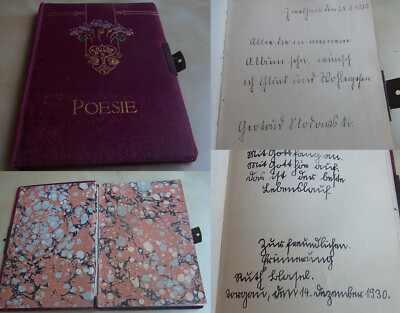 POESIE
Alle die in meinem
Album sehn, wünsch
ich Glück und Wohlergehen.
Gertrud
Mit Gott fang an.
Mit Gott hör auf.
das ist der beste
Lebenslauf.
Zur freundlichen
Erinnerung
Ruth Blasel.
Torgau, den 14. Dezember 1930.